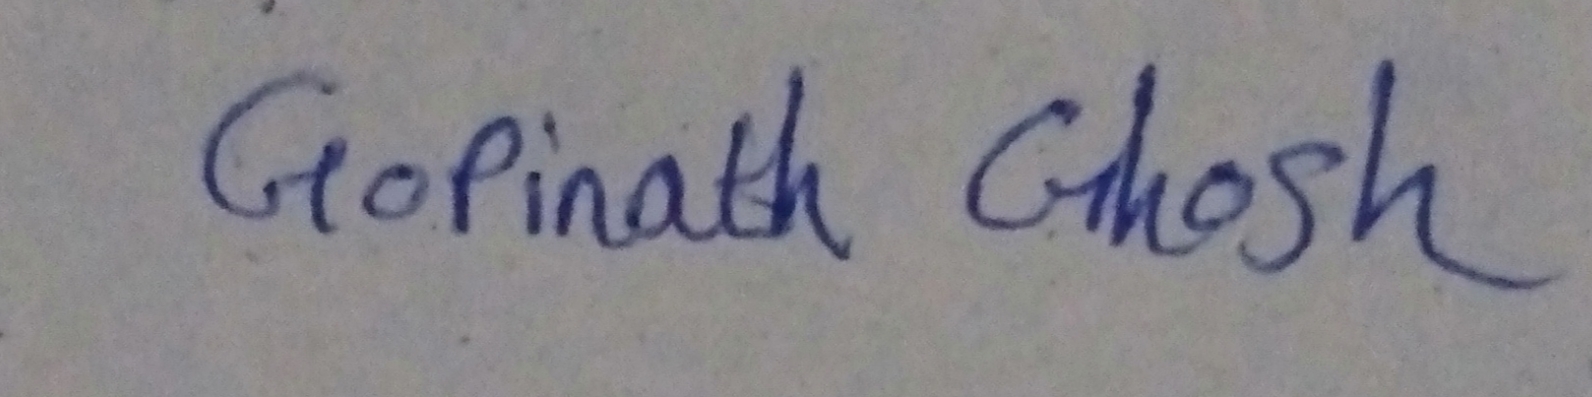 Gopinath Ghosh